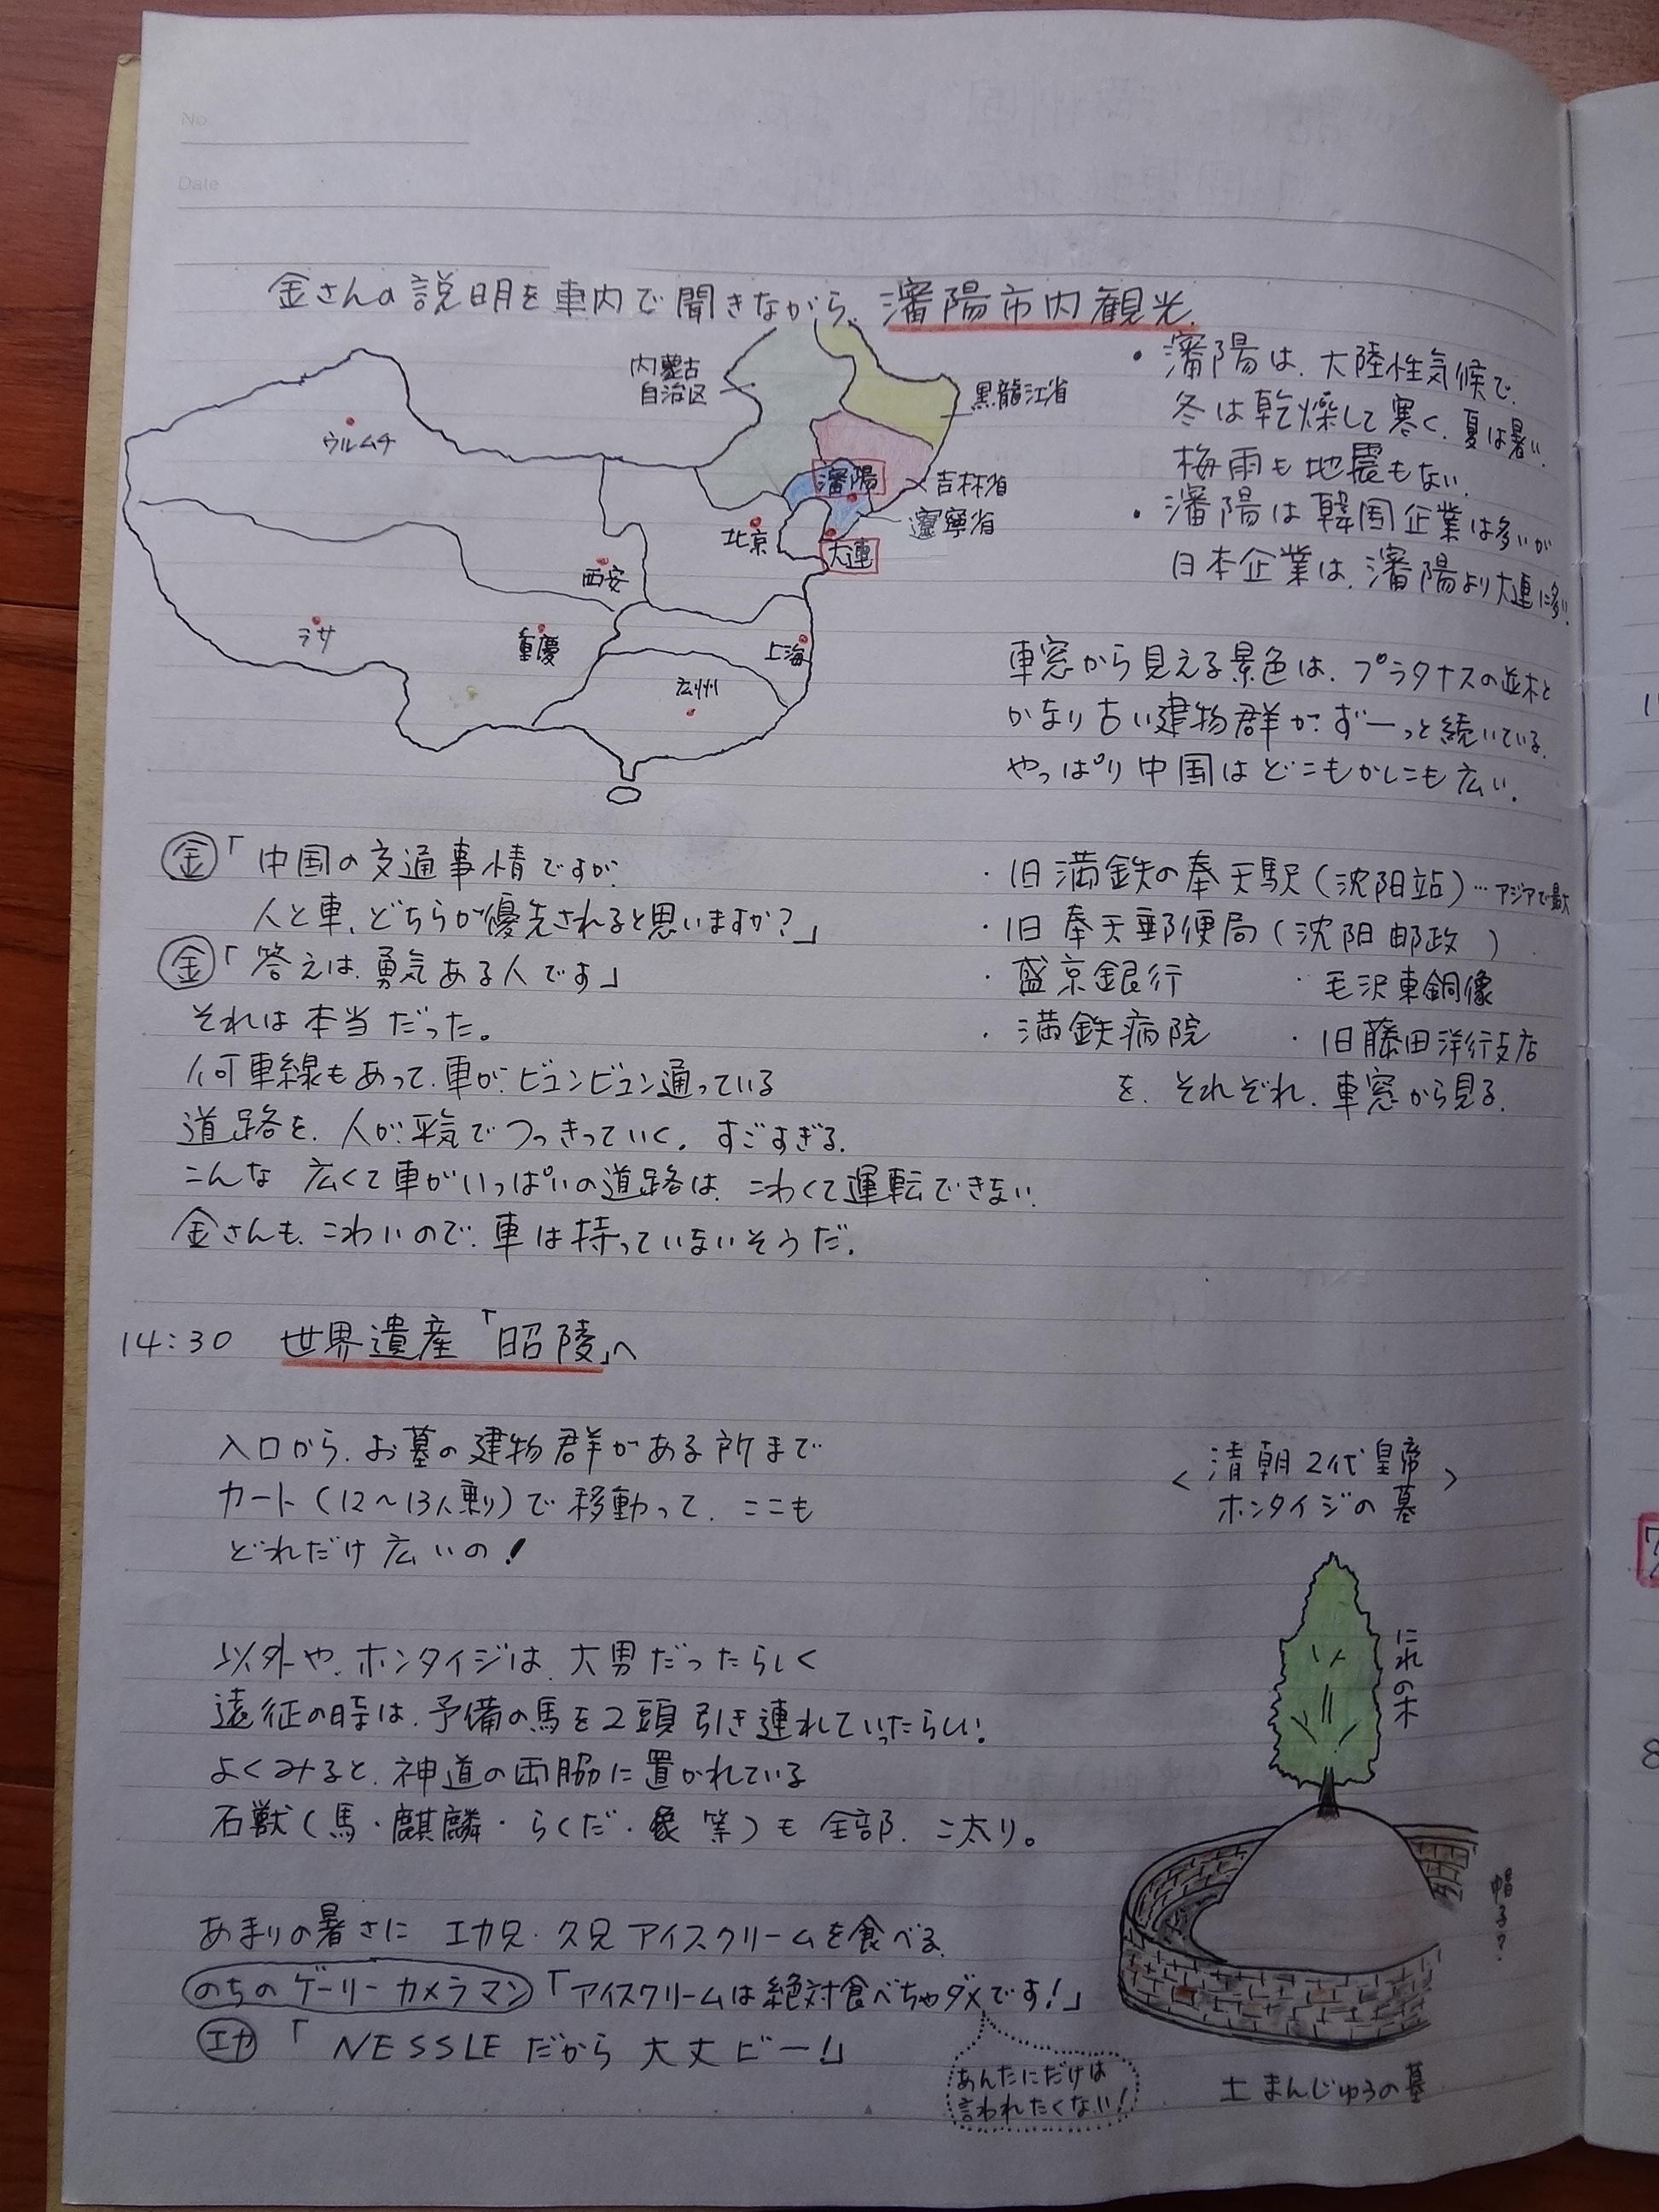 No
Date
金さんの説明を車内で聞きながら、瀋陽市内観光。
内蒙古
自治区
黒龍江省
ウルムチ
瀋陽
吉林省
遼寧省
北京
大連
西安
ラサ
重慶
上海
広州
・瀋陽は、大陸性気候で、
冬は乾燥して寒く、夏は暑い。
梅雨も地震もない。
・瀋陽は韓国企業は多いが
日本企業は、瀋陽より大連に多い。
車窓から見える景色は、プラタナスの並木と
かなり古い建物群が、ずーっと続いている。
やっぱり中国はどこもかしこも広い。
金「中国の交通事情ですが、
人と車、どちらが優先されると思いますか?」
金「答えは、勇気ある人です」
それは本当だった。
何車線もあって、車が、ビュンビュン通っている
道路を、人が、平気でつっきっていく。すごすぎる。
こんな 広くて車がいっぱいの道路は、こわくて運転できない。
金さんも、こわいので、車は持っていないそうだ。
・旧満鉄の奉天駅(沈阳站)…アジアで最大
・旧奉天郵便局(沈阳邮政)
・盛京銀行 ・毛沢東銅像
・満鉄病院 ・旧藤田洋行支店
を、それぞれ、車窓から見る。
14:30 世界遺産「昭陵」へ
入口から、お墓の建物群がある所まで
カート(12〜13人乗り)で移動って、ここも
どれだけ広いの!
<清朝2代皇帝
ホンタイジの墓>
にれの木
以外や、ホンタイジは、大男だったらしく
遠征の時は、予備の馬を2頭引き連れていったらしい。
よくみると、神道の両脇に置かれている
石獣(馬・麒麟・らくだ・象 等)も全部、こ太り。
帽子?
あまりの暑さに エカ兄・久兄アイスクリームを食べる。
のちのゲーリーカメラマン「アイスクリームは絶対食べちゃダメです!」
エカ「NESSLEだから大丈ビー!」
あんたにだけは
言われたくない!
土まんじゅうの墓